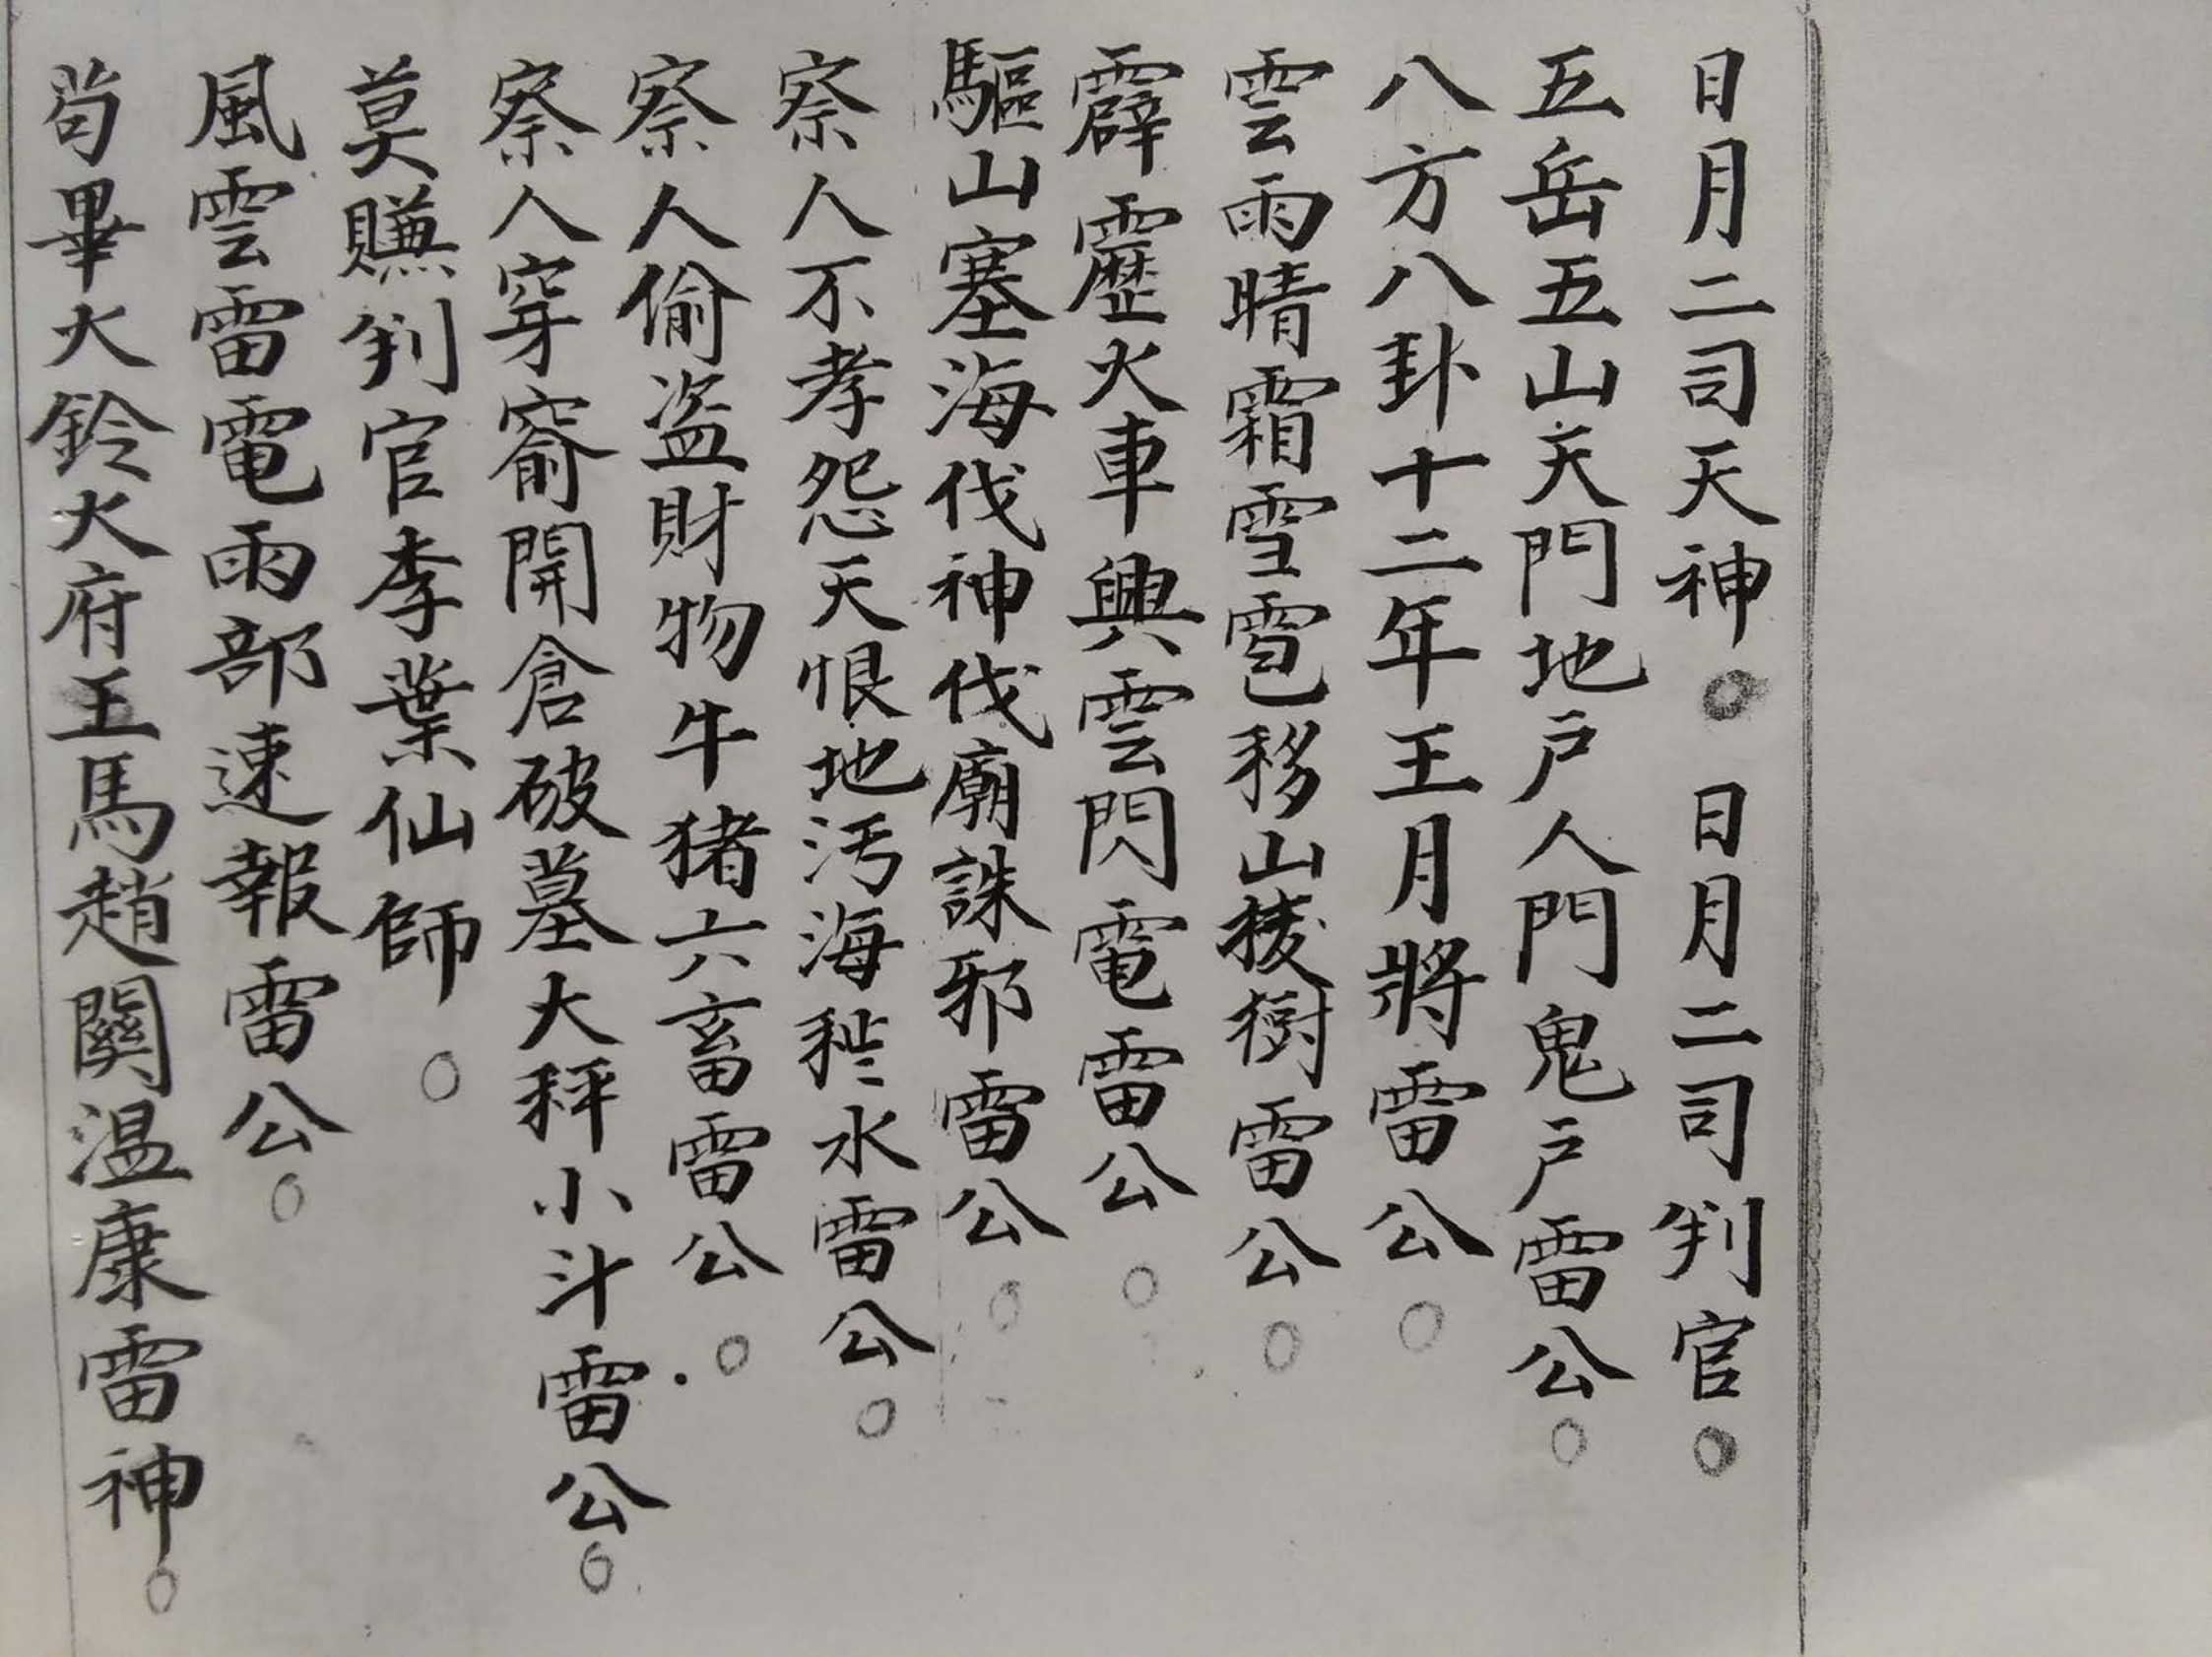 日月二司天神。日月二司判官。
五岳五山天門地户人門鬼户雷公。
八方八卦十二年王月將雷公。
雲雨晴霜雪雹移山拔樹雷公。
霹靂火車興雲閃電雷公。
驅山塞海伐神伐廟誅邪雷公。
察人不孝怨天恨地污海水雷公。
察人偷盗財物牛猪六畜雷公。
察人穿窬開倉破墓大秤小斗雷公。
莫賺判官李葉仙師。
風雲雷電雨部速報雷公。
苟畢火鈴火府王馬趙關温康雷神。